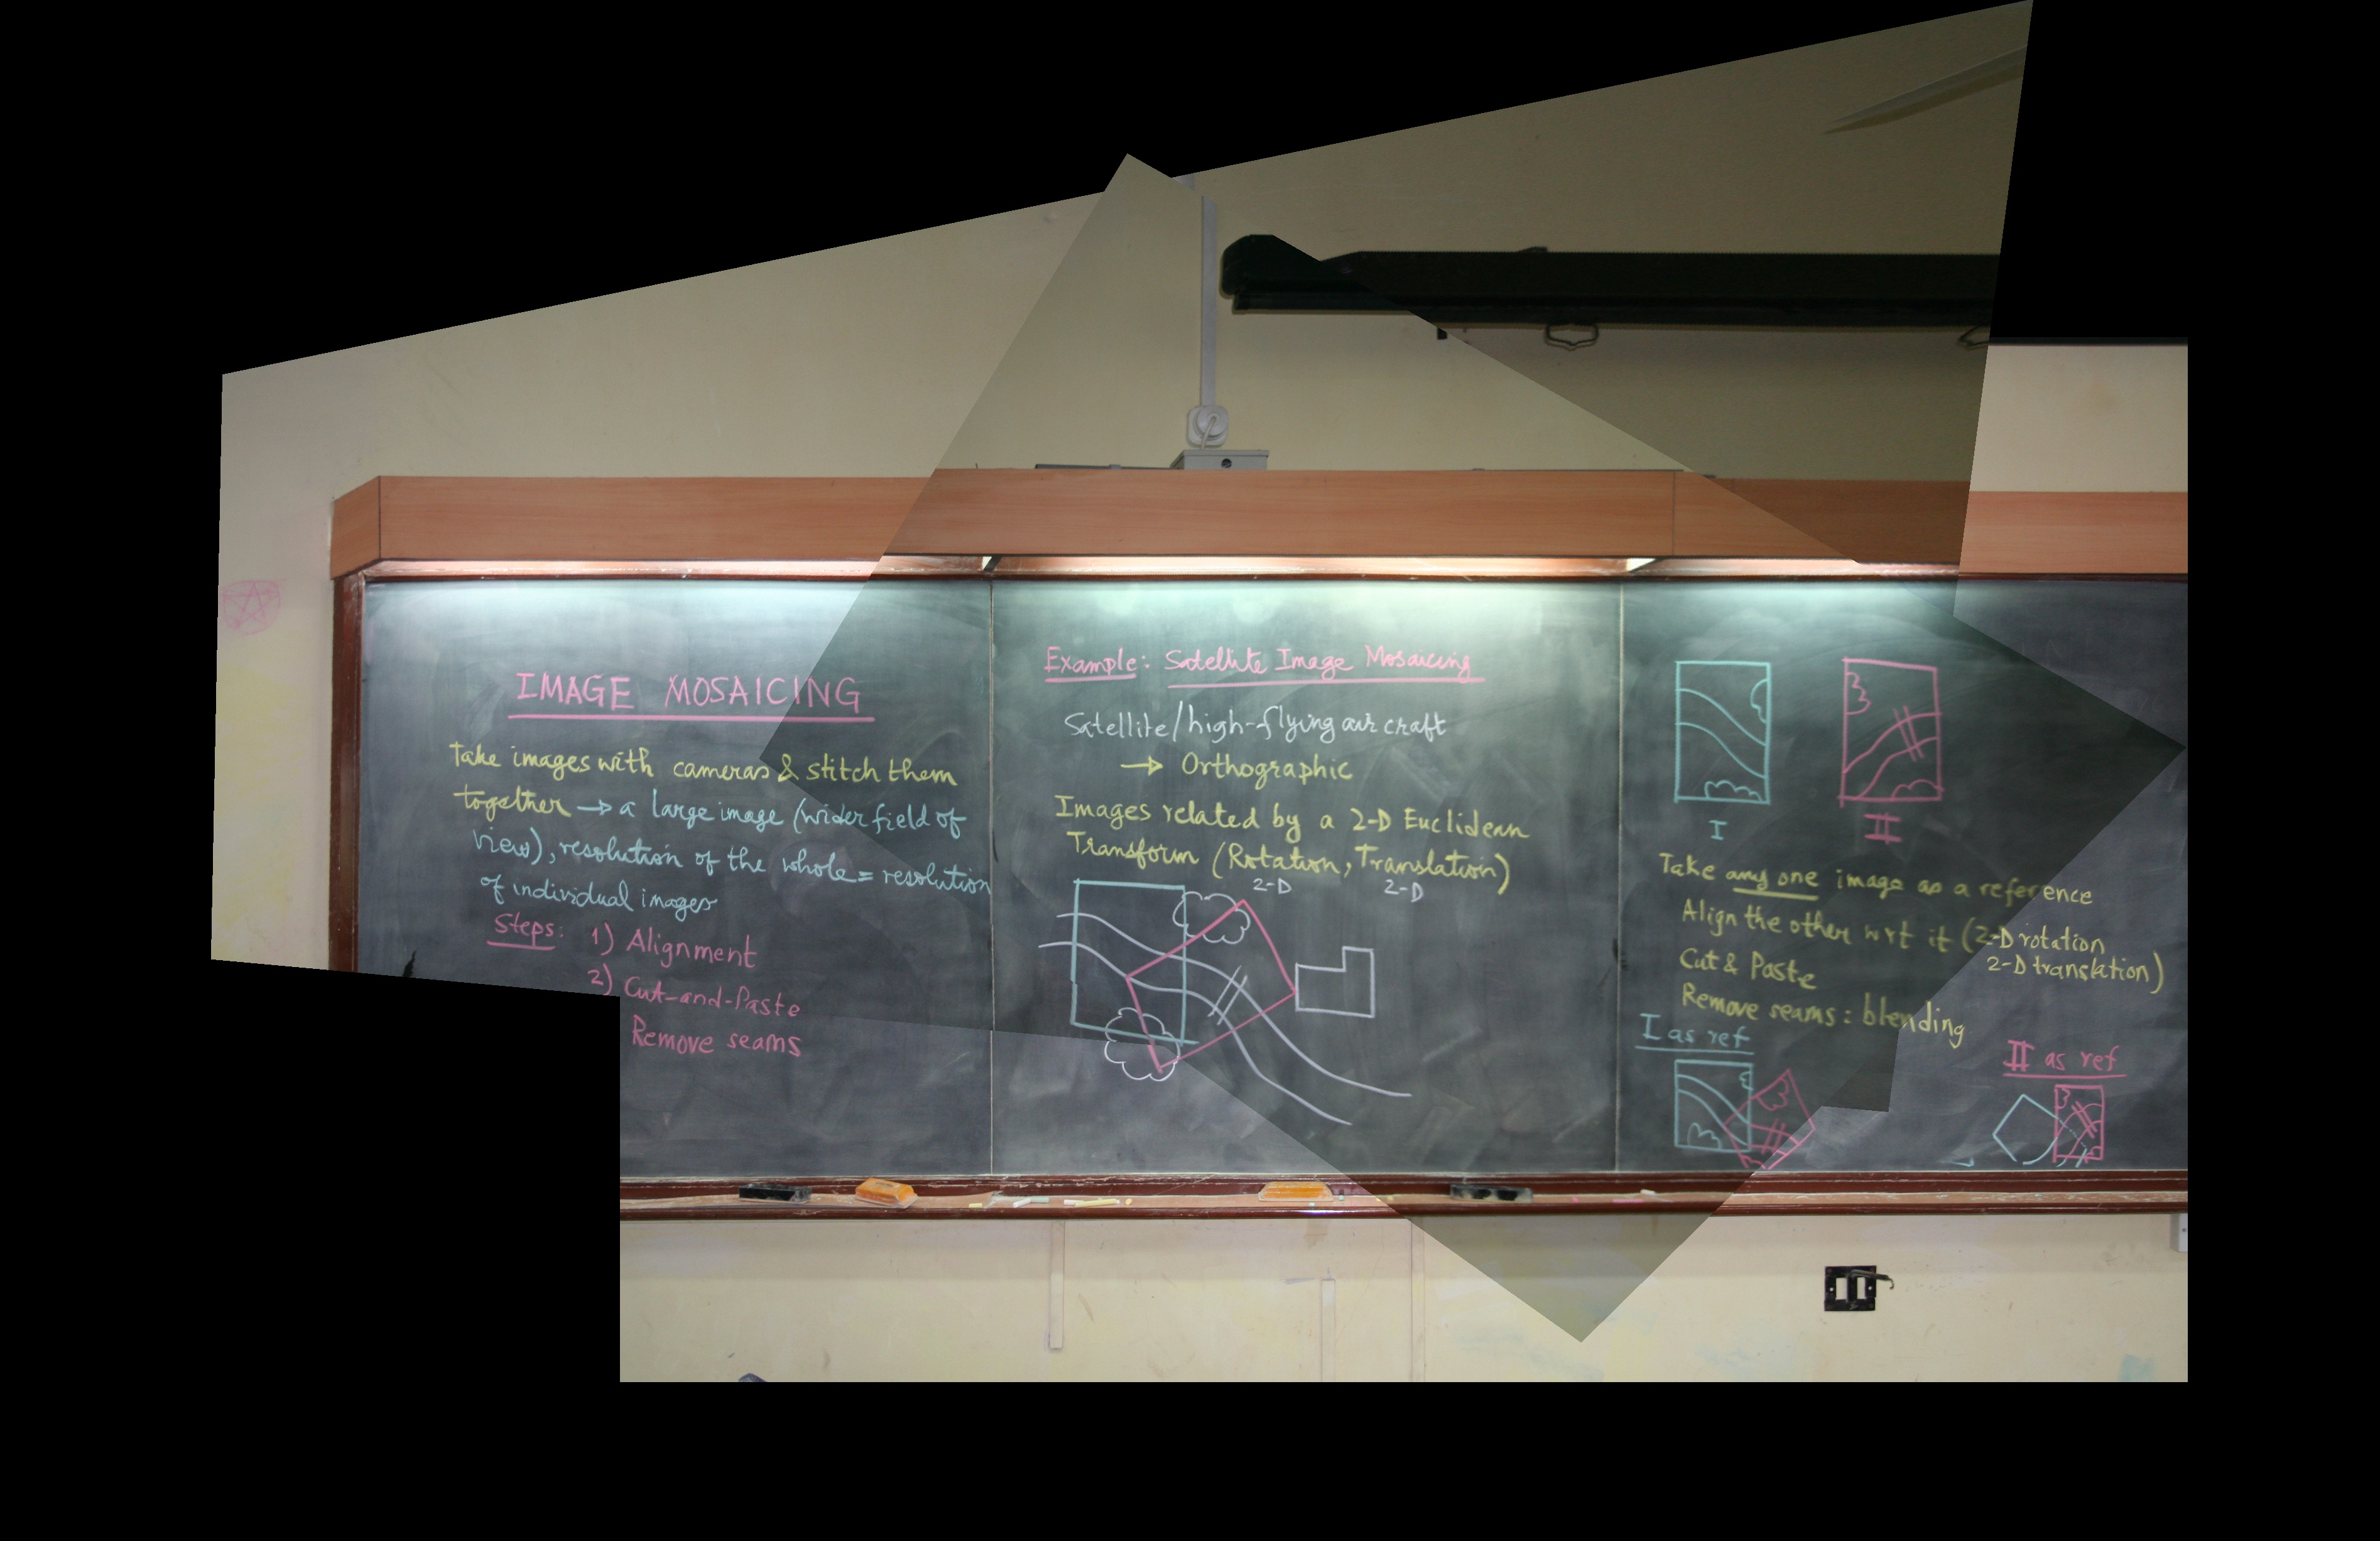 IMAGE MOSAICING
Take images with cameras & stitch them
together → a large image (wider field of
view), resolution of the whole = resolution
of individual images
Steps: 1) Alignment
2) Cut-and-Paste
Remove seams
Example: Satellite Image Mosaicing
Satellite/high-flying air craft
→ Orthographic
Images related by a 2-D Euclidean
Transform (Rotation, Translation)
2-D 2-D
I II
Take any one image as a reference
Align the other wrt it (2-D rotation
2-D translation)
Cut & Paste
Remove seams: blending
I as ref
II as ref